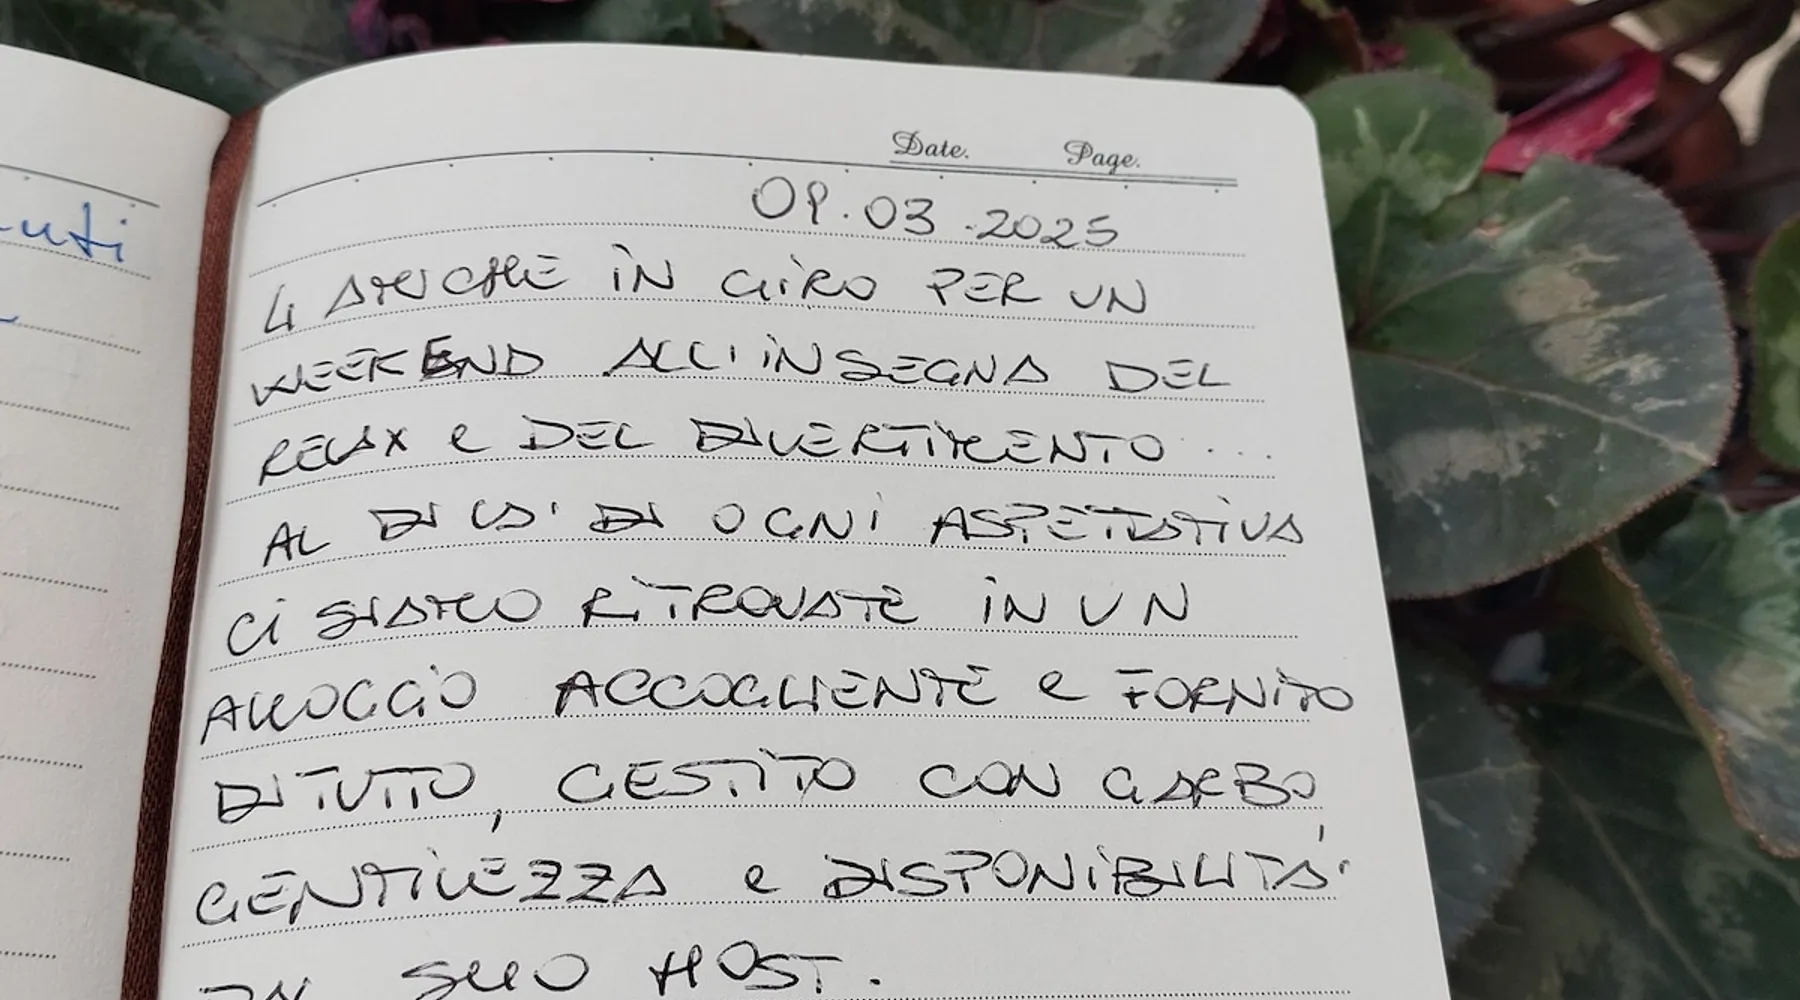 uti
Date. Page.
09.03.2025
4 AMICHE IN GIRO PER UN
WEEKEND ALL'INSEGNA DEL
RELAX e DEL DIVERTIMENTO...
AL DI LA' DI OGNI ASPETTATIVA
CI SIAMO RITROVATE IN UN
ALLOGGIO ACCOGLIENTE e FORNITO
DI TUTTO, GESTITO CON GARBO,
GENTILEZZA e DISPONIBILITA'
SUO HOST.